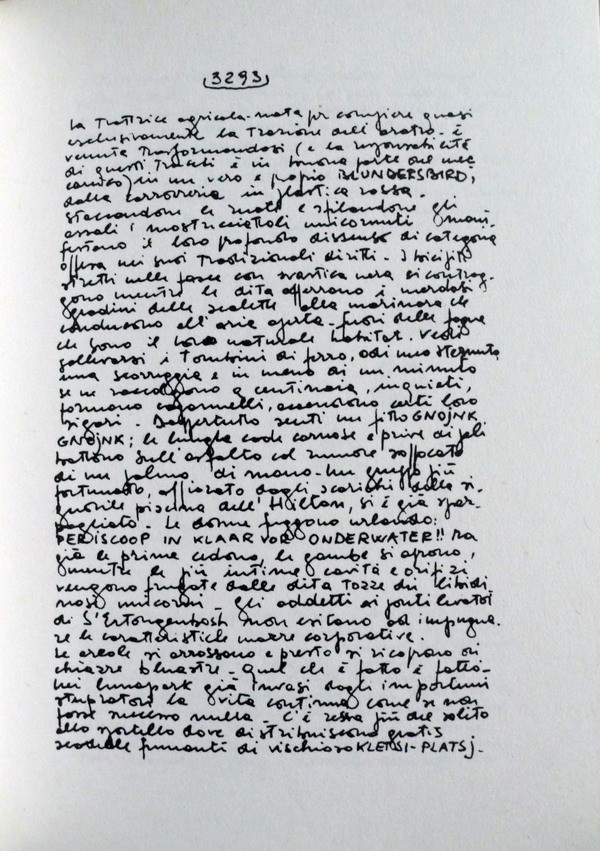 3293
La Trattrice agricola nata per compiere quasi
esclusivamente la Trazione dell'aratro è
venuta Trasformandosi (e la responsabilità
di questi Trucchi è in buona parte del mec
canico) in un vero e proprio BLUNDERSBIRD,
dalla carrozzeria in plastica rossa.
staccandone le ruote e sfilandone gli
assali i mostricciattoli unicornuti mani
festano il loro profondo dissenso di categoria
offesa nei suoi Tradizionali diritti. I bicipiti
stretti nelle fasce con svastica nera si contrag-
gono mentre le dita afferrano i
gradini delle scalette alla marinara che
conducono all'aria aperta fuori delle fogne
che sono il loro naturale habitat. Vedi
sollevarsi i Tombini di ferro, odi uno sternuto
una scorreggia e in meno di un minuto
se ne raccolgono a centinaia, inquieti,
formano capannelli, accendono certi loro
sigari. Dappertutto senti un fitto GNOJNK
GNOJNK; le lunghe code carnose e prive di peli
battono sull'asfalto col rumore soffocato
di un palmo di mano. Un gruppo più
fortunato, affiorato dagli scarichi della si-
gnorile piscina dell'Hilton, si è già spar-
pagliato. Le donne fuggono urlando:
PERISCOOP IN KLAAR VOR ONDERWATER!! Ma
già le prime cedono, le gambe si aprono,
mentre le più intime cavità e orifizi
vengono frugate dalle dita Tozze dei libidi
nosi unicorni. Gli addetti ai ponti levatoi
di S'Ertongenbosh non esitano ad impugna-
re le caratteristiche mazze corporative.
Le areole si arrossano e presto si ricoprono di
chiazze bluastre. Quel che è fatto è fatto.
Nei lunapark già invasi dagli importuni
stupratori la vita continua come se non
fosse successo nulla. C'è ressa più del solito
allo sportello dove distribuiscono gratis
scodelle fumanti di vischioso KLETSI-PLATSJ.